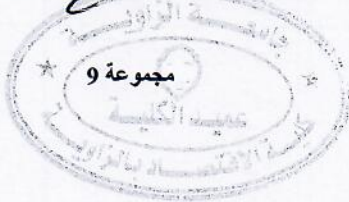 جامعة الزاوية
مجموعة 9
عميد الكلية
كلية الاقتصاد بالزاوية